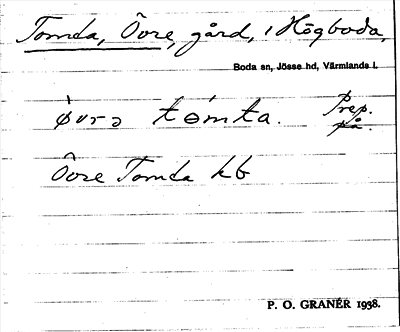 Tomta, Övre, gård, i Högboda,
Boda sn, Jösse hd, Värmlands l.
ø̀vrə tómta. Prep.
på.
Övre Tomta kb
P. O. GRANÉR 1938.